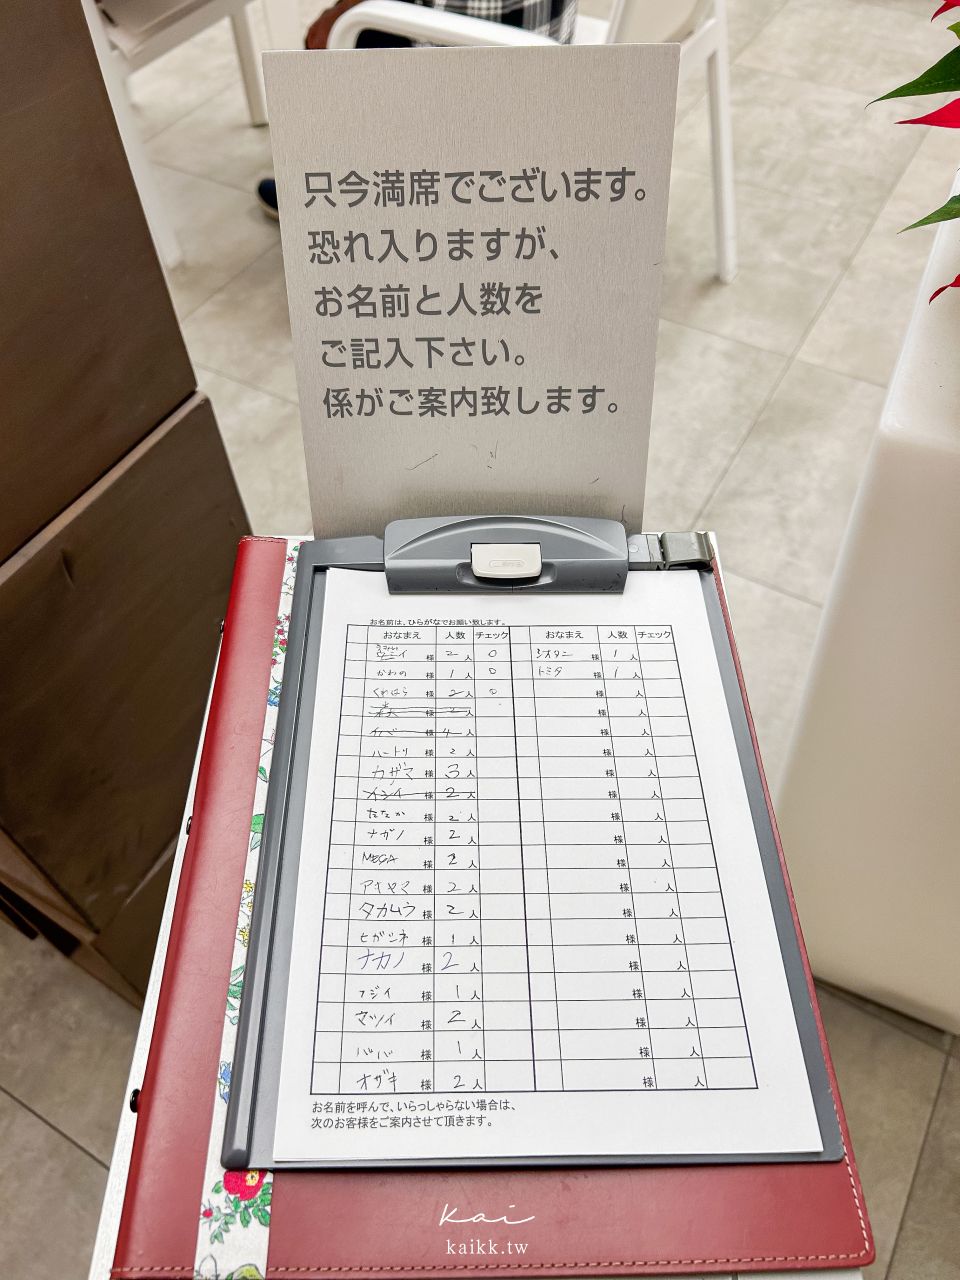 只今満席でございます。
恐れ入りますが、
お名前と人数を
ご記入下さい。
係がご案内致します。
お名前は、ひらがなでお願い致します。
おなまえ 人数 チェック おなまえ 人数 チェック
様 2 人 0 シオタニ 様 1 人
かわの 様 1 人 0 トミタ 様 1 人
くわはら 様 2 人 0 様 人
様 2 人 様 人
様 4 人 様 人
ハートリ 様 2 人 様 人
カザマ 様 3 人 様 人
イシイ 様 2 人 様 人
たなか 様 2 人 様 人
ナガノ 様 2 人 様 人
MEGA 様 2 人 様 人
アキヤマ 様 2 人 様 人
タカムラ 様 2 人 様 人
ヒガシネ 様 1 人 様 人
ナカノ 様 2 人 様 人
フジイ 様 1 人 様 人
マツイ 様 2 人 様 人
ババ 様 1 人 様 人
オザキ 様 2 人 様 人
お名前を呼んで、いらっしゃらない場合は、
次のお客様をご案内させて頂きます。
kai
kaikk.tw